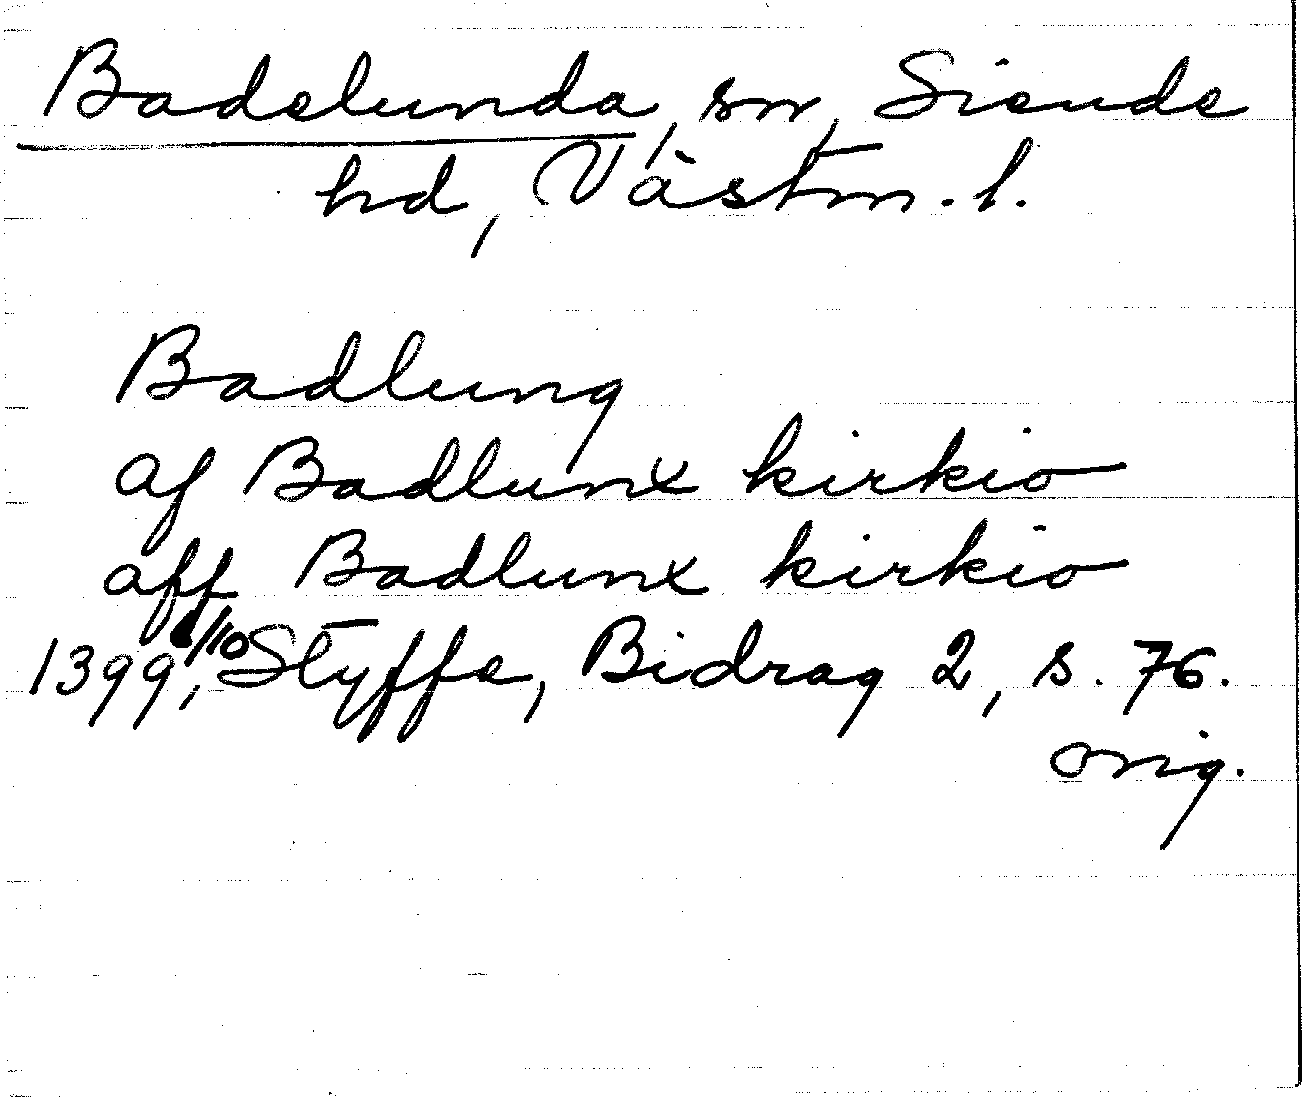 Badelunda, sn, Siende
hd, Västm. l.
Badlung
af Badlunx kirkio
aff Badlunx kirkio
1399 /10, Styffe, Bidrag 2, s. 76.
orig.